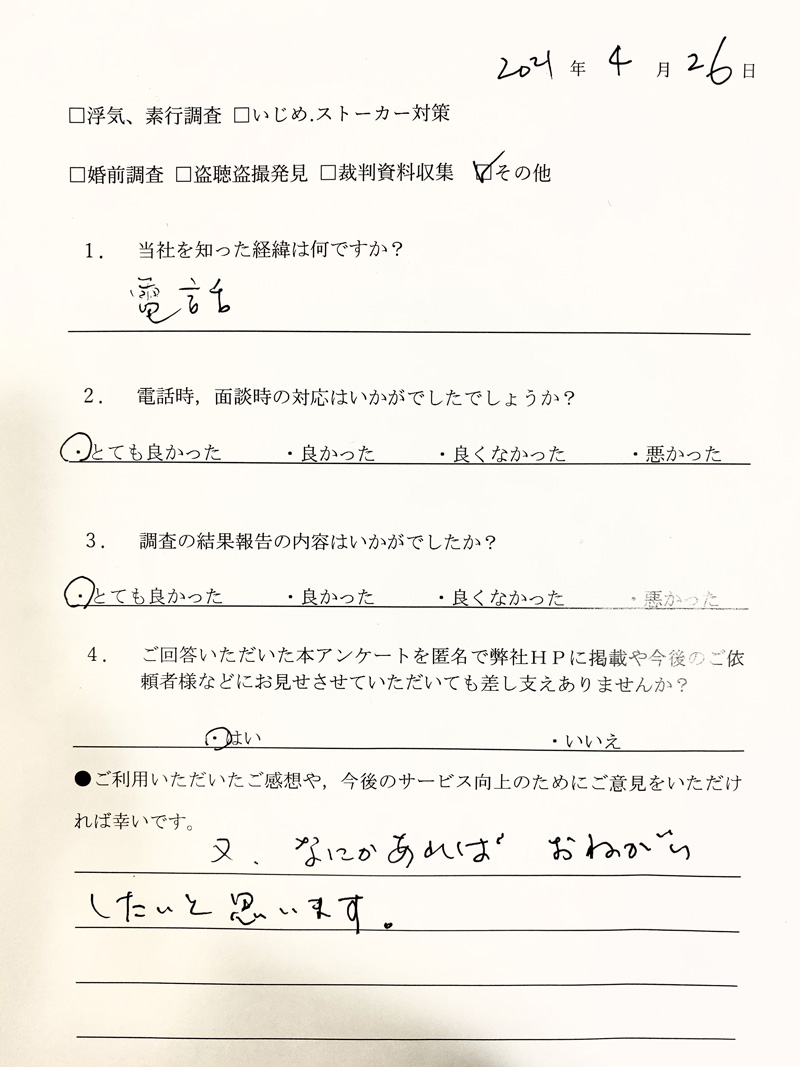 2021 年 4 月 26 日
□浮気、素行調査 □いじめ.ストーカー対策
□婚前調査 □盗聴盗撮発見 □裁判資料収集 ☑その他
1. 当社を知った経緯は何ですか？
電話
2. 電話時，面談時の対応はいかがでしたでしょうか？
・とても良かった ・良かった ・良くなかった ・悪かった
3. 調査の結果報告の内容はいかがでしたか？
・とても良かった ・良かった ・良くなかった ・悪かった
4. ご回答いただいた本アンケートを匿名で弊社ＨＰに掲載や今後のご依
頼者様などにお見せさせていただいても差し支えありませんか？
・はい ・いいえ
●ご利用いただいたご感想や，今後のサービス向上のためにご意見をいただけ
れば幸いです。
又、なにかあれば おねがい
したいと思います。